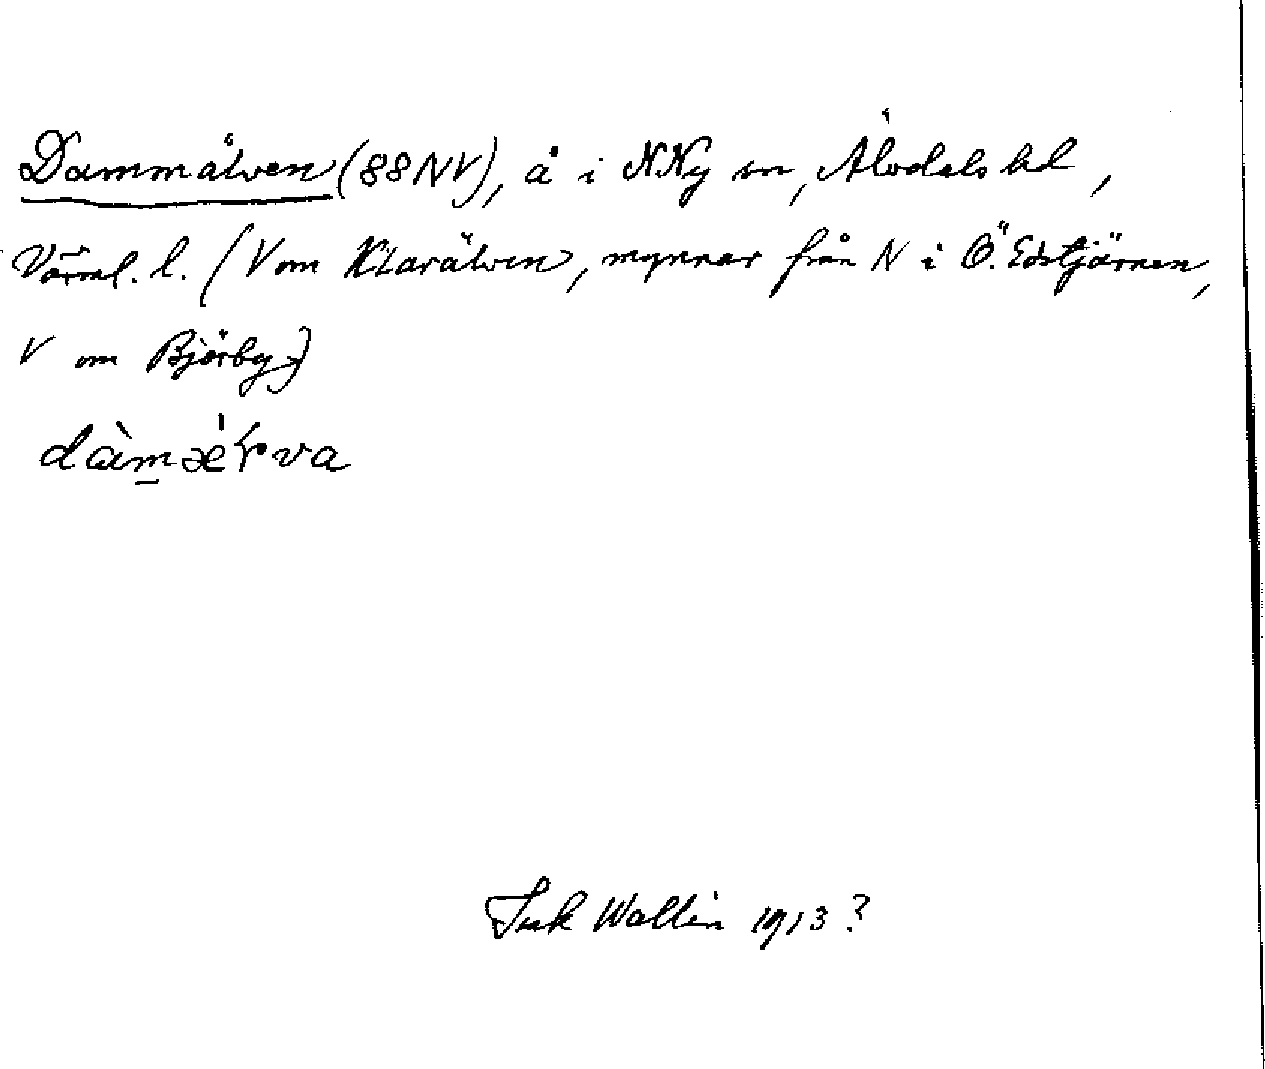 Dammälven (88NV), å i NNy sn, Älvdals hd,
Värml. l. (V om Klarälven, mynnar från N i Ö. Edstjärnen,
V om Björby)
dàmǽrva
Wallin 1913?